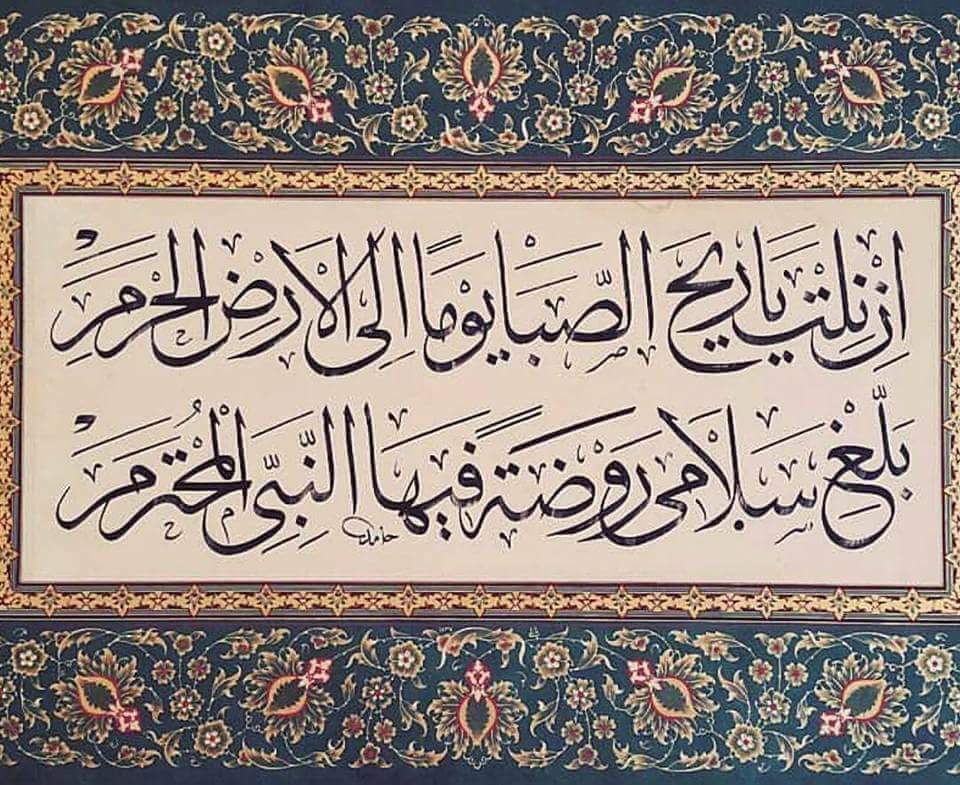 اِنْ نِلْتَ يَا رِيحَ الصَّبَا يَوْمًا اِلَى الْاَرْضِ الْحَرَمْ
بَلِّغْ سَلَامِى رَوْضَةً فِيهَا النَّبِىُّ الْمُحْتَرَمْ
حامد